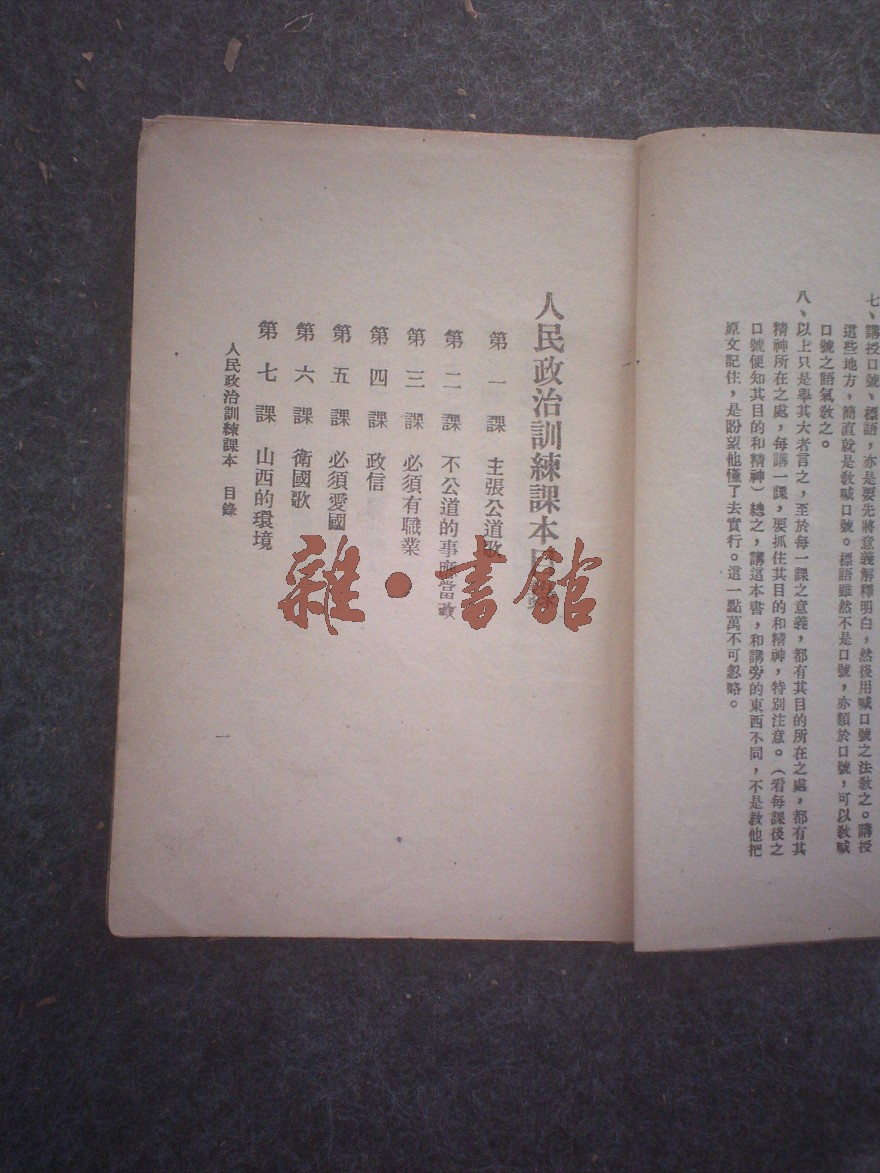 七、講授口號、標語，亦是要先將意義解釋明白，然後用喊口號之法敎之。講授
這些地方，簡直就是敎喊口號。標語雖然不是口號，亦類於口號，可以敎喊
口號之語氣敎之。
八、以上只是舉其大者言之，至於每一課之意義，都有其目的所在之處，都有其
精神所在之處，每講一課，要抓住其目的和精神，特別注意。（看每課後之
口號便知其目的和精神）總之，講這本書，和講旁的東西不同，不是敎他把
原文記住，是盼望他懂了去實行。這一點萬不可忽略。
人民政治訓練課本目錄
第一課 主張公道歌
第二課 不公道的事應當改
第三課 必須有職業
第四課 政信
第五課 必須愛國
第六課 衛國歌
第七課 山西的環境
人民政治訓練課本 目錄
一
雜·書館